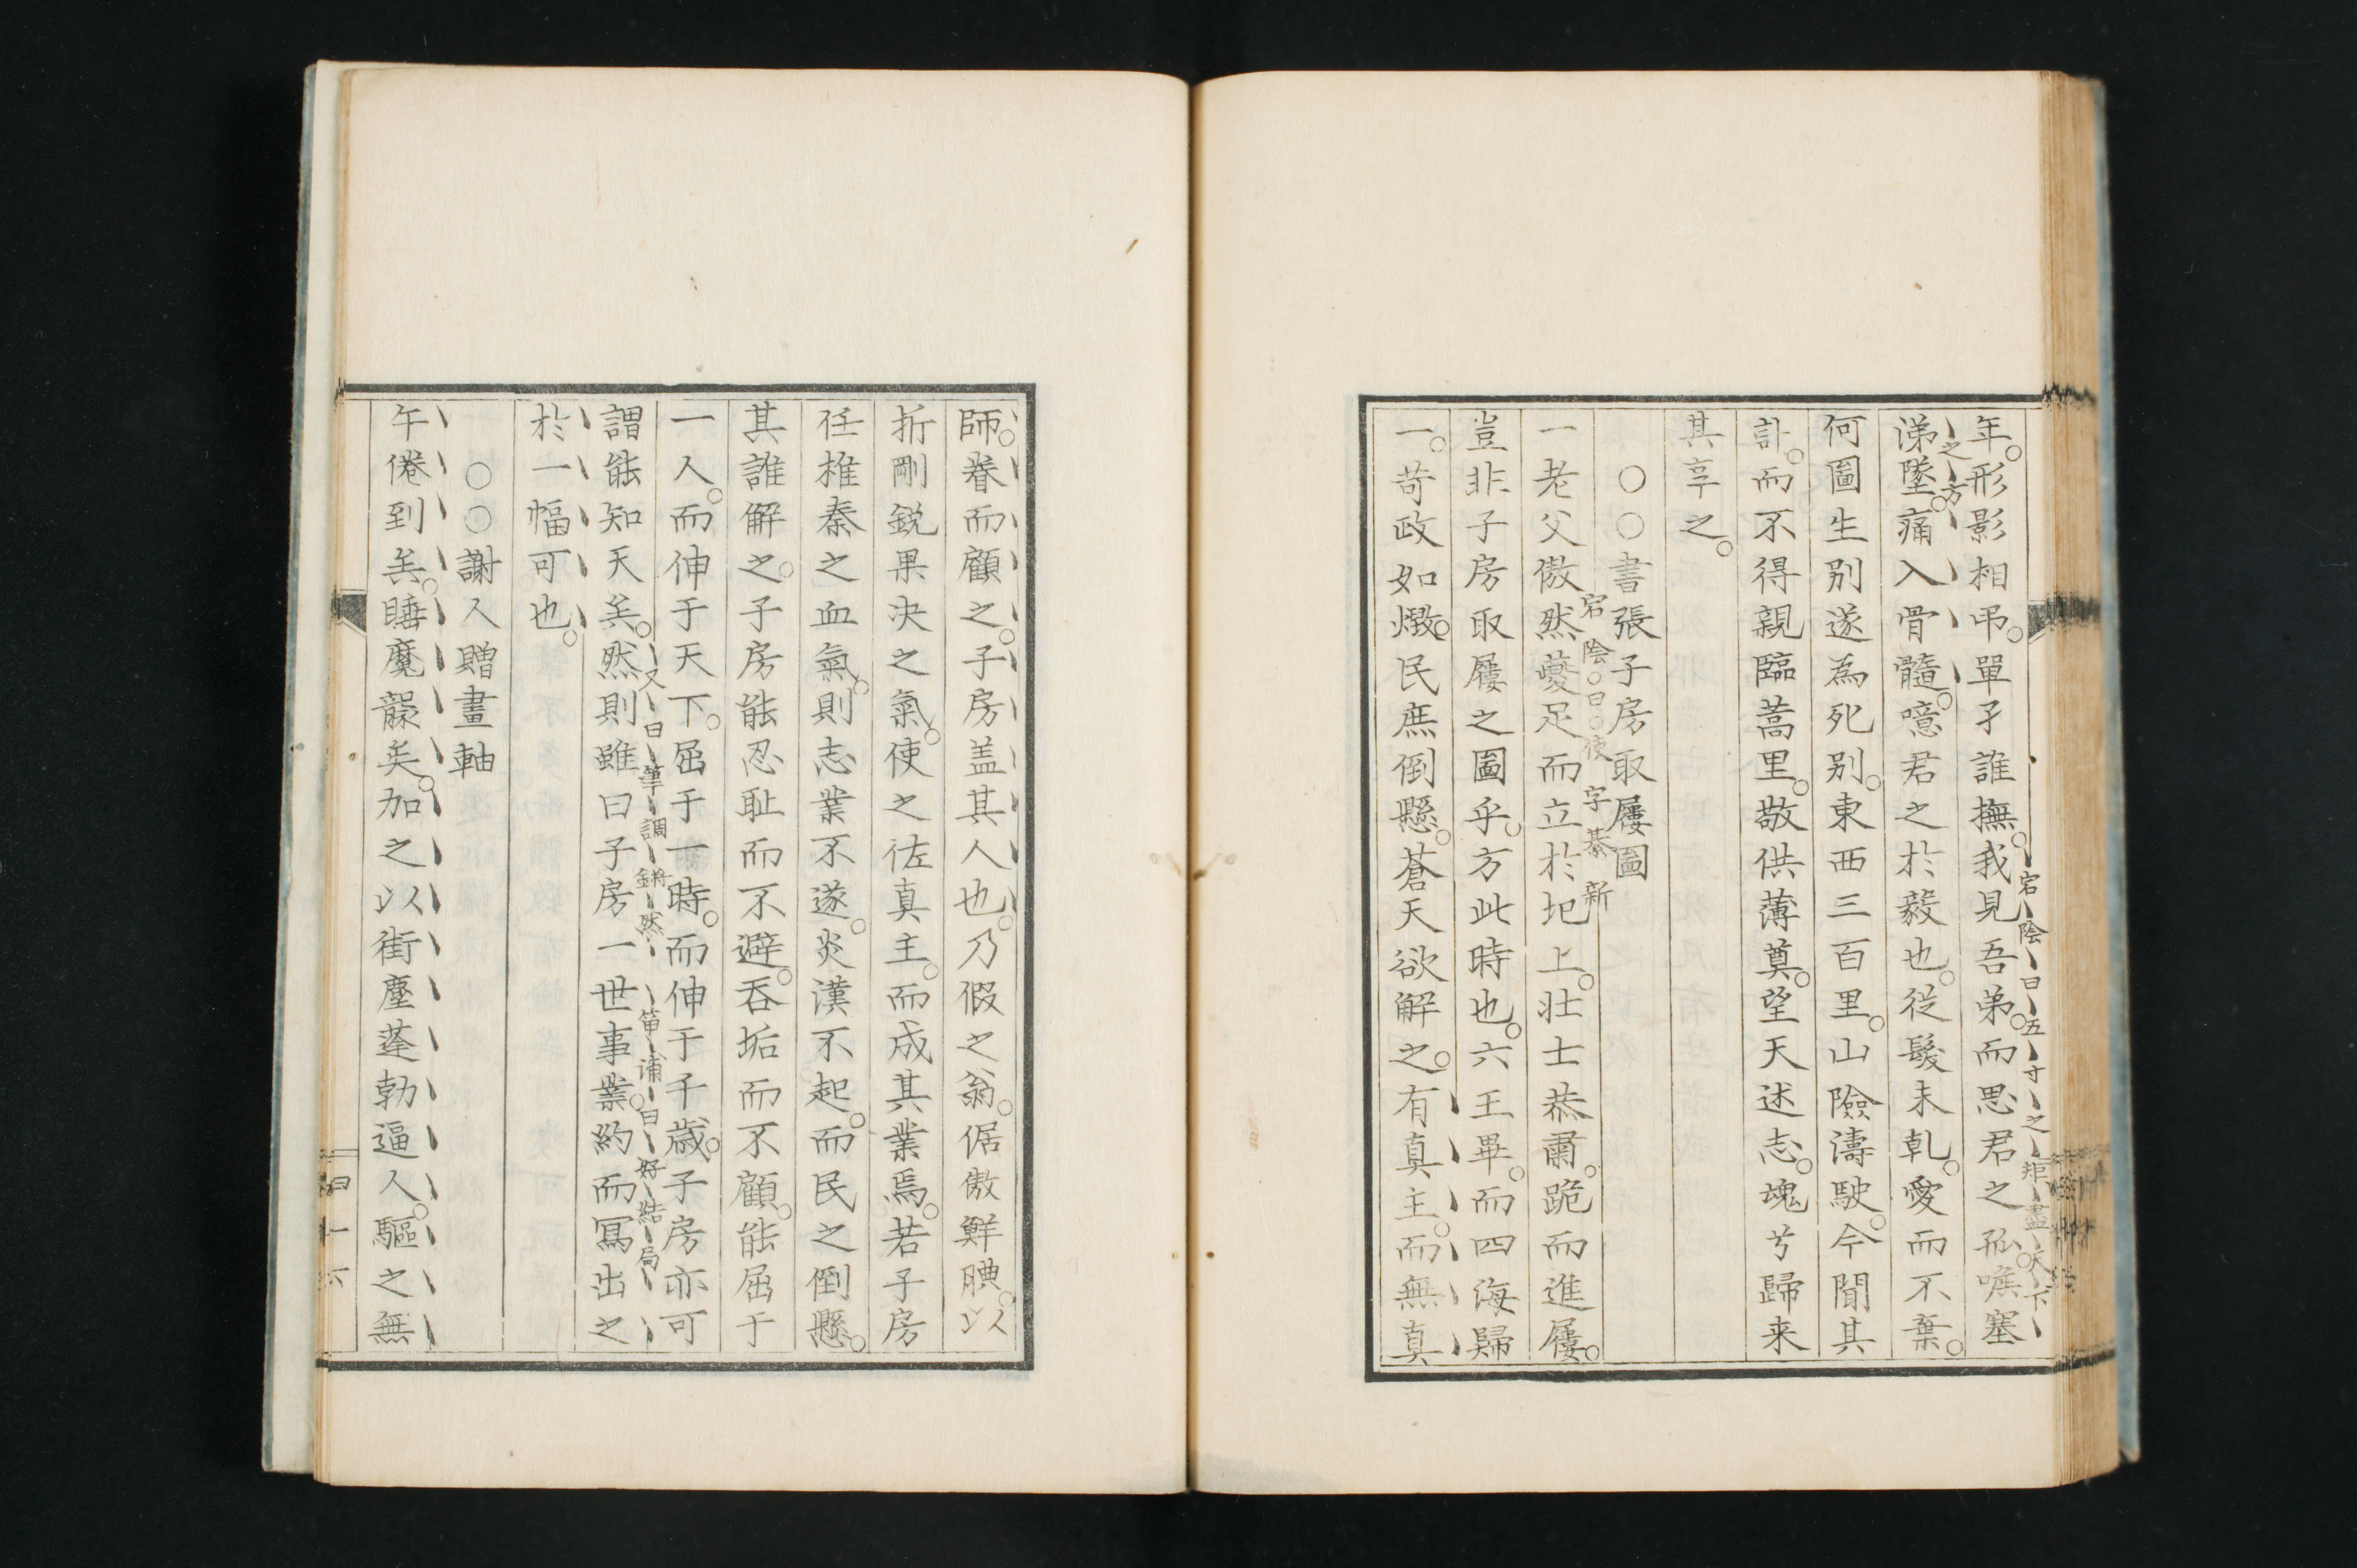 年。形影相弔。單孑誰撫。我見吾弟。而思君之孤。喉塞
宕陰曰五寸之矩盡天下
之方
涕墜。痛入骨髓。噫君之於毅也。從髮未乹。愛而不棄。
何圖生別遂為死别。東西三百里。山險濤駛。今聞其
訃。而不得親臨蒿里。敬供薄奠。望天述志。魂兮歸来
其享之。
○○書張子房取屨圖
宕陰○曰○使字綦新
一老父傲然蘷足而立於圯上。壮士恭肅。跪而進屨。
豈非子房取屨之圖乎。方此時也。六王畢。而四海歸
一。苛政如燬。民庶倒懸。蒼天欲解之。有真主。而無真
師。眷而顧之。子房盖其人也。乃假之翁。倨傲鮮腆。以
折剛鋭果决之氣。使之佐真主。而成其業焉。若子房
任椎秦之血氣。則志業不遂。炎漢不起。而民之倒懸。
其誰解之。子房能忍耻而不避。吞垢而不顧。能屈于
一人。而伸于天下。屈于一時。而伸于千歳。子房亦可
又曰筆調鏘然
笛浦曰好結局
謂能知天矣。然則雖曰子房一世事業。約而冩出之
於一幅可也。
○○謝人贈畫軸
午倦到矣。睡魔𨅬矣。加之以街塵蓬勃逼人。驅之無
四十六